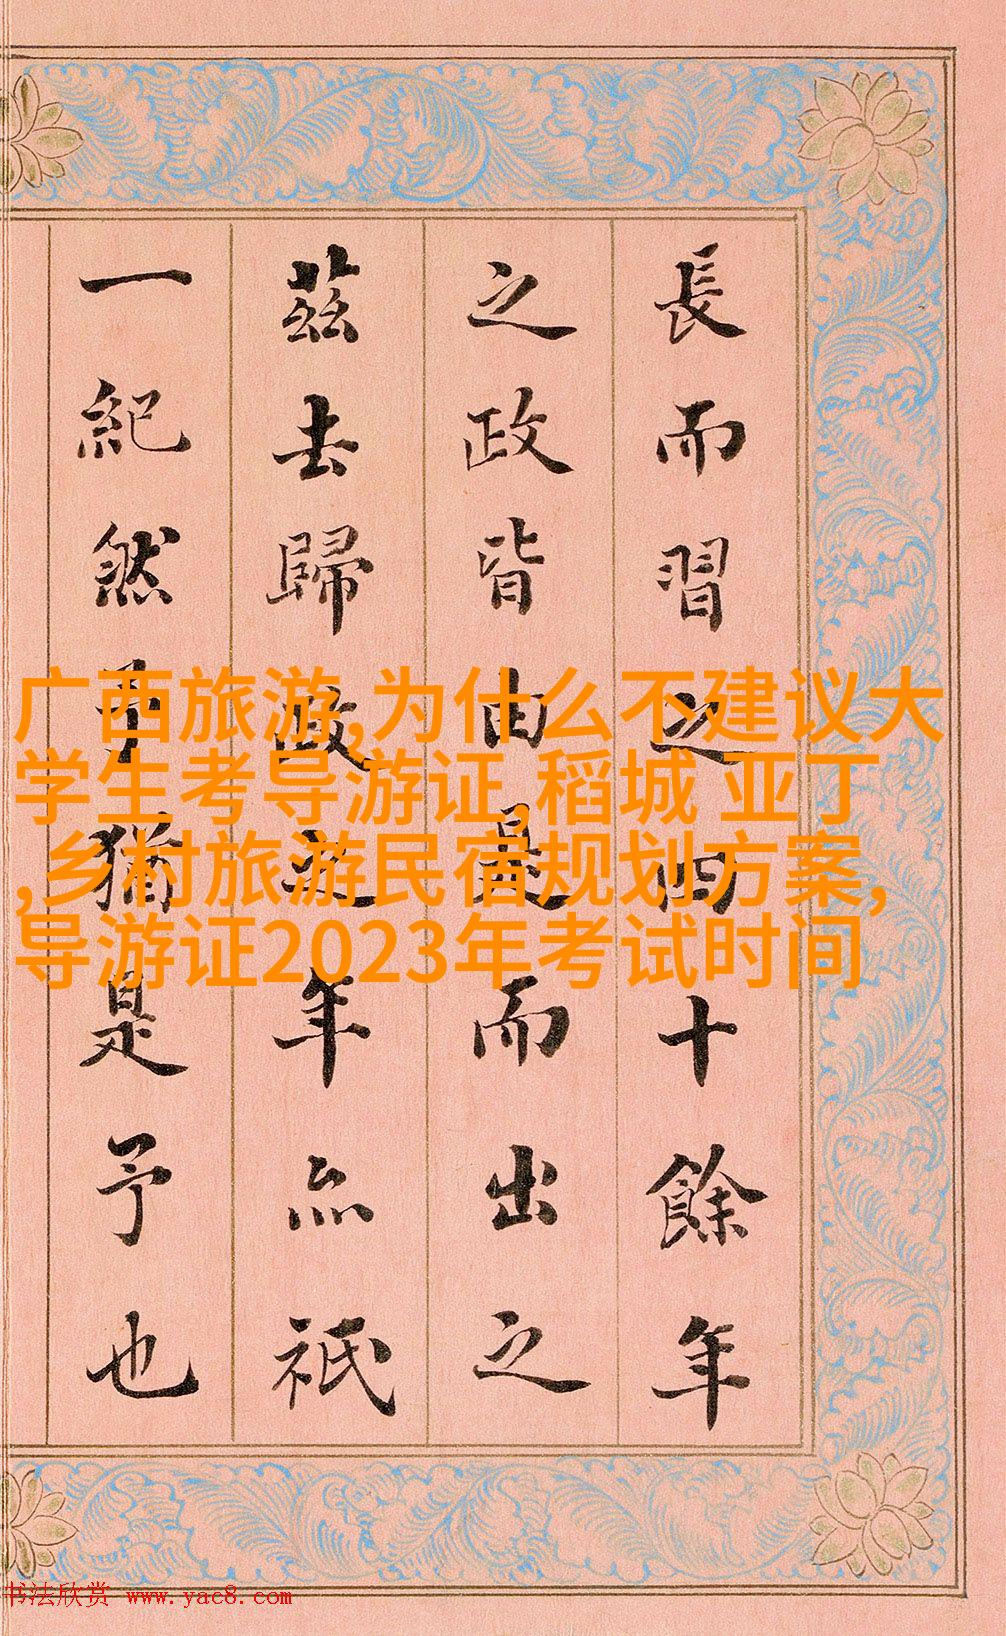 長而習之四十餘年
之政皆由是而出之
茲去歸政之年亦祇
一紀然予猶是予也
广西旅游,为什么不建议大
学生考导游证,稻城 亚丁
,乡村旅游民宿规划方案,
导游证2023年考试时间
书法欣赏 www.yac8.com